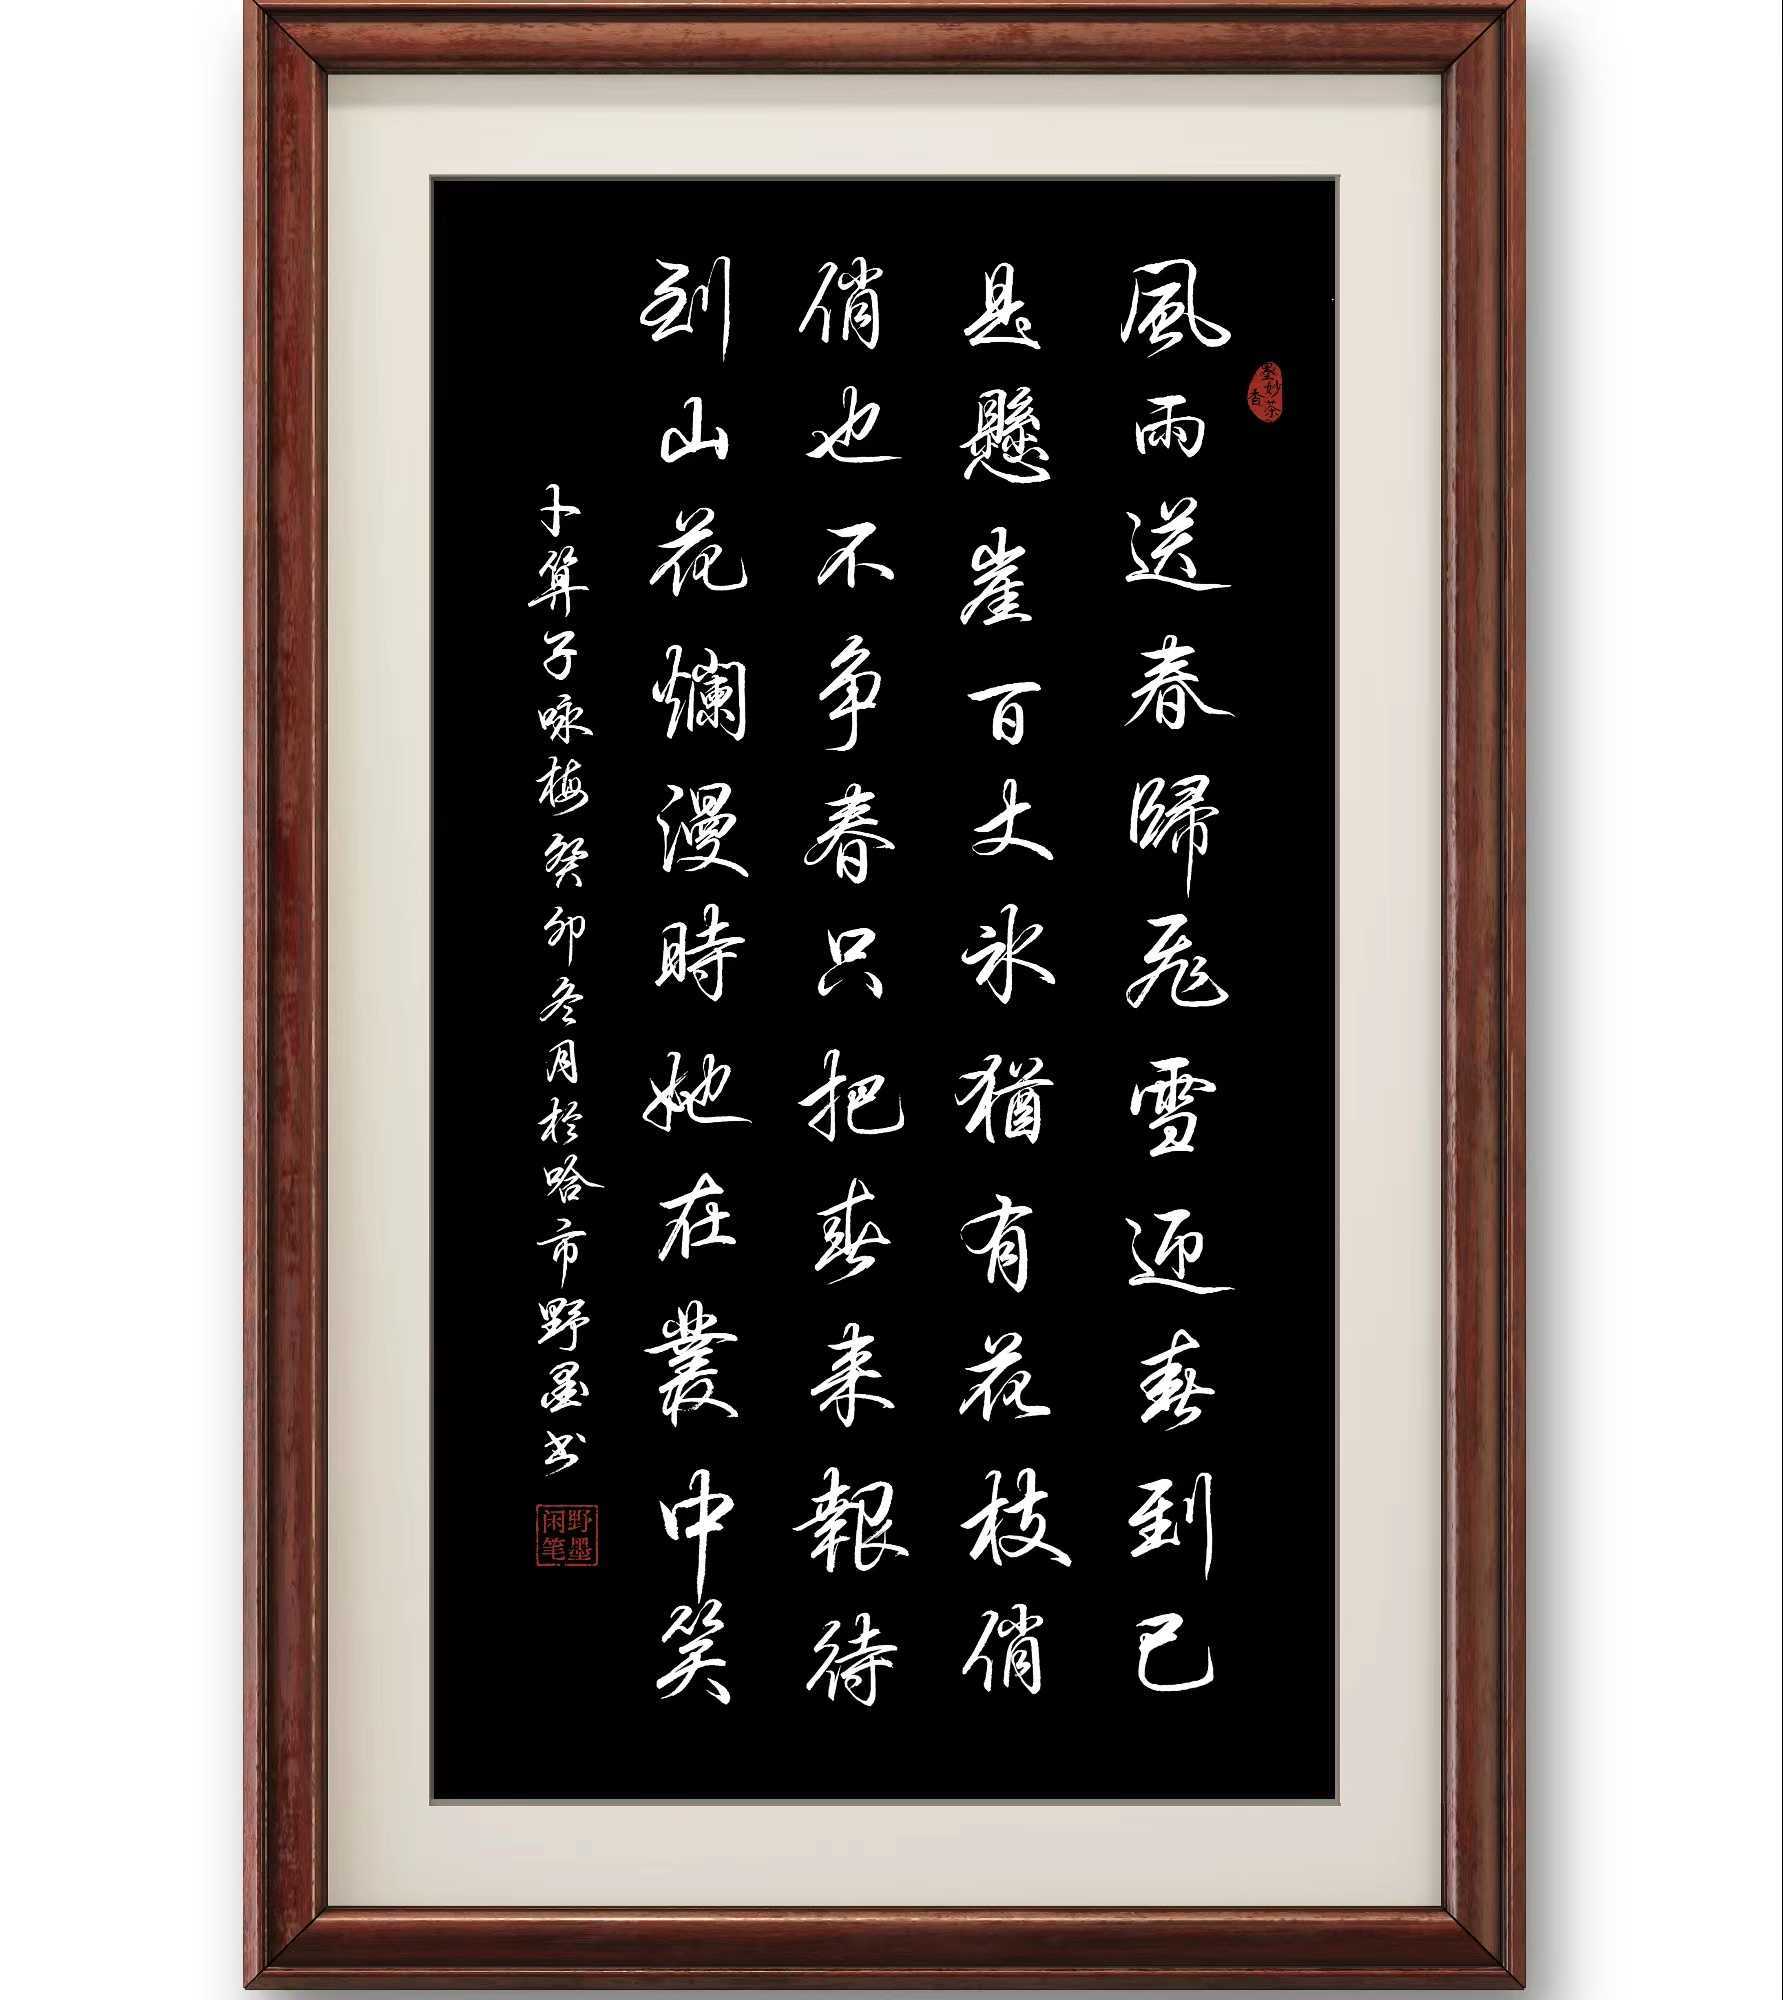 風雨送春歸飛雪迎春到已
是懸崖百丈冰猶有花枝俏
俏也不争春只把春来報待
到山花爛漫時她在叢中笑
卜算子咏梅癸卯冬月於哈市野墨书
墨妙茶香
野墨闲笔